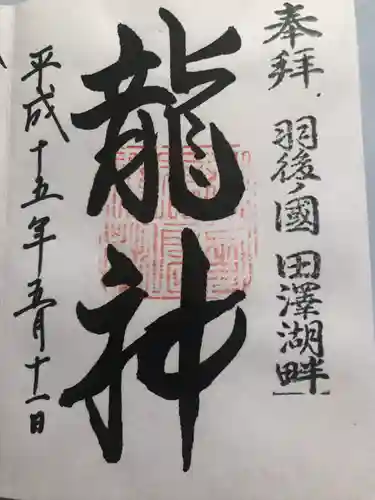 奉拝
羽後ノ國 田澤湖畔
龍神
平成十五年五月十一日